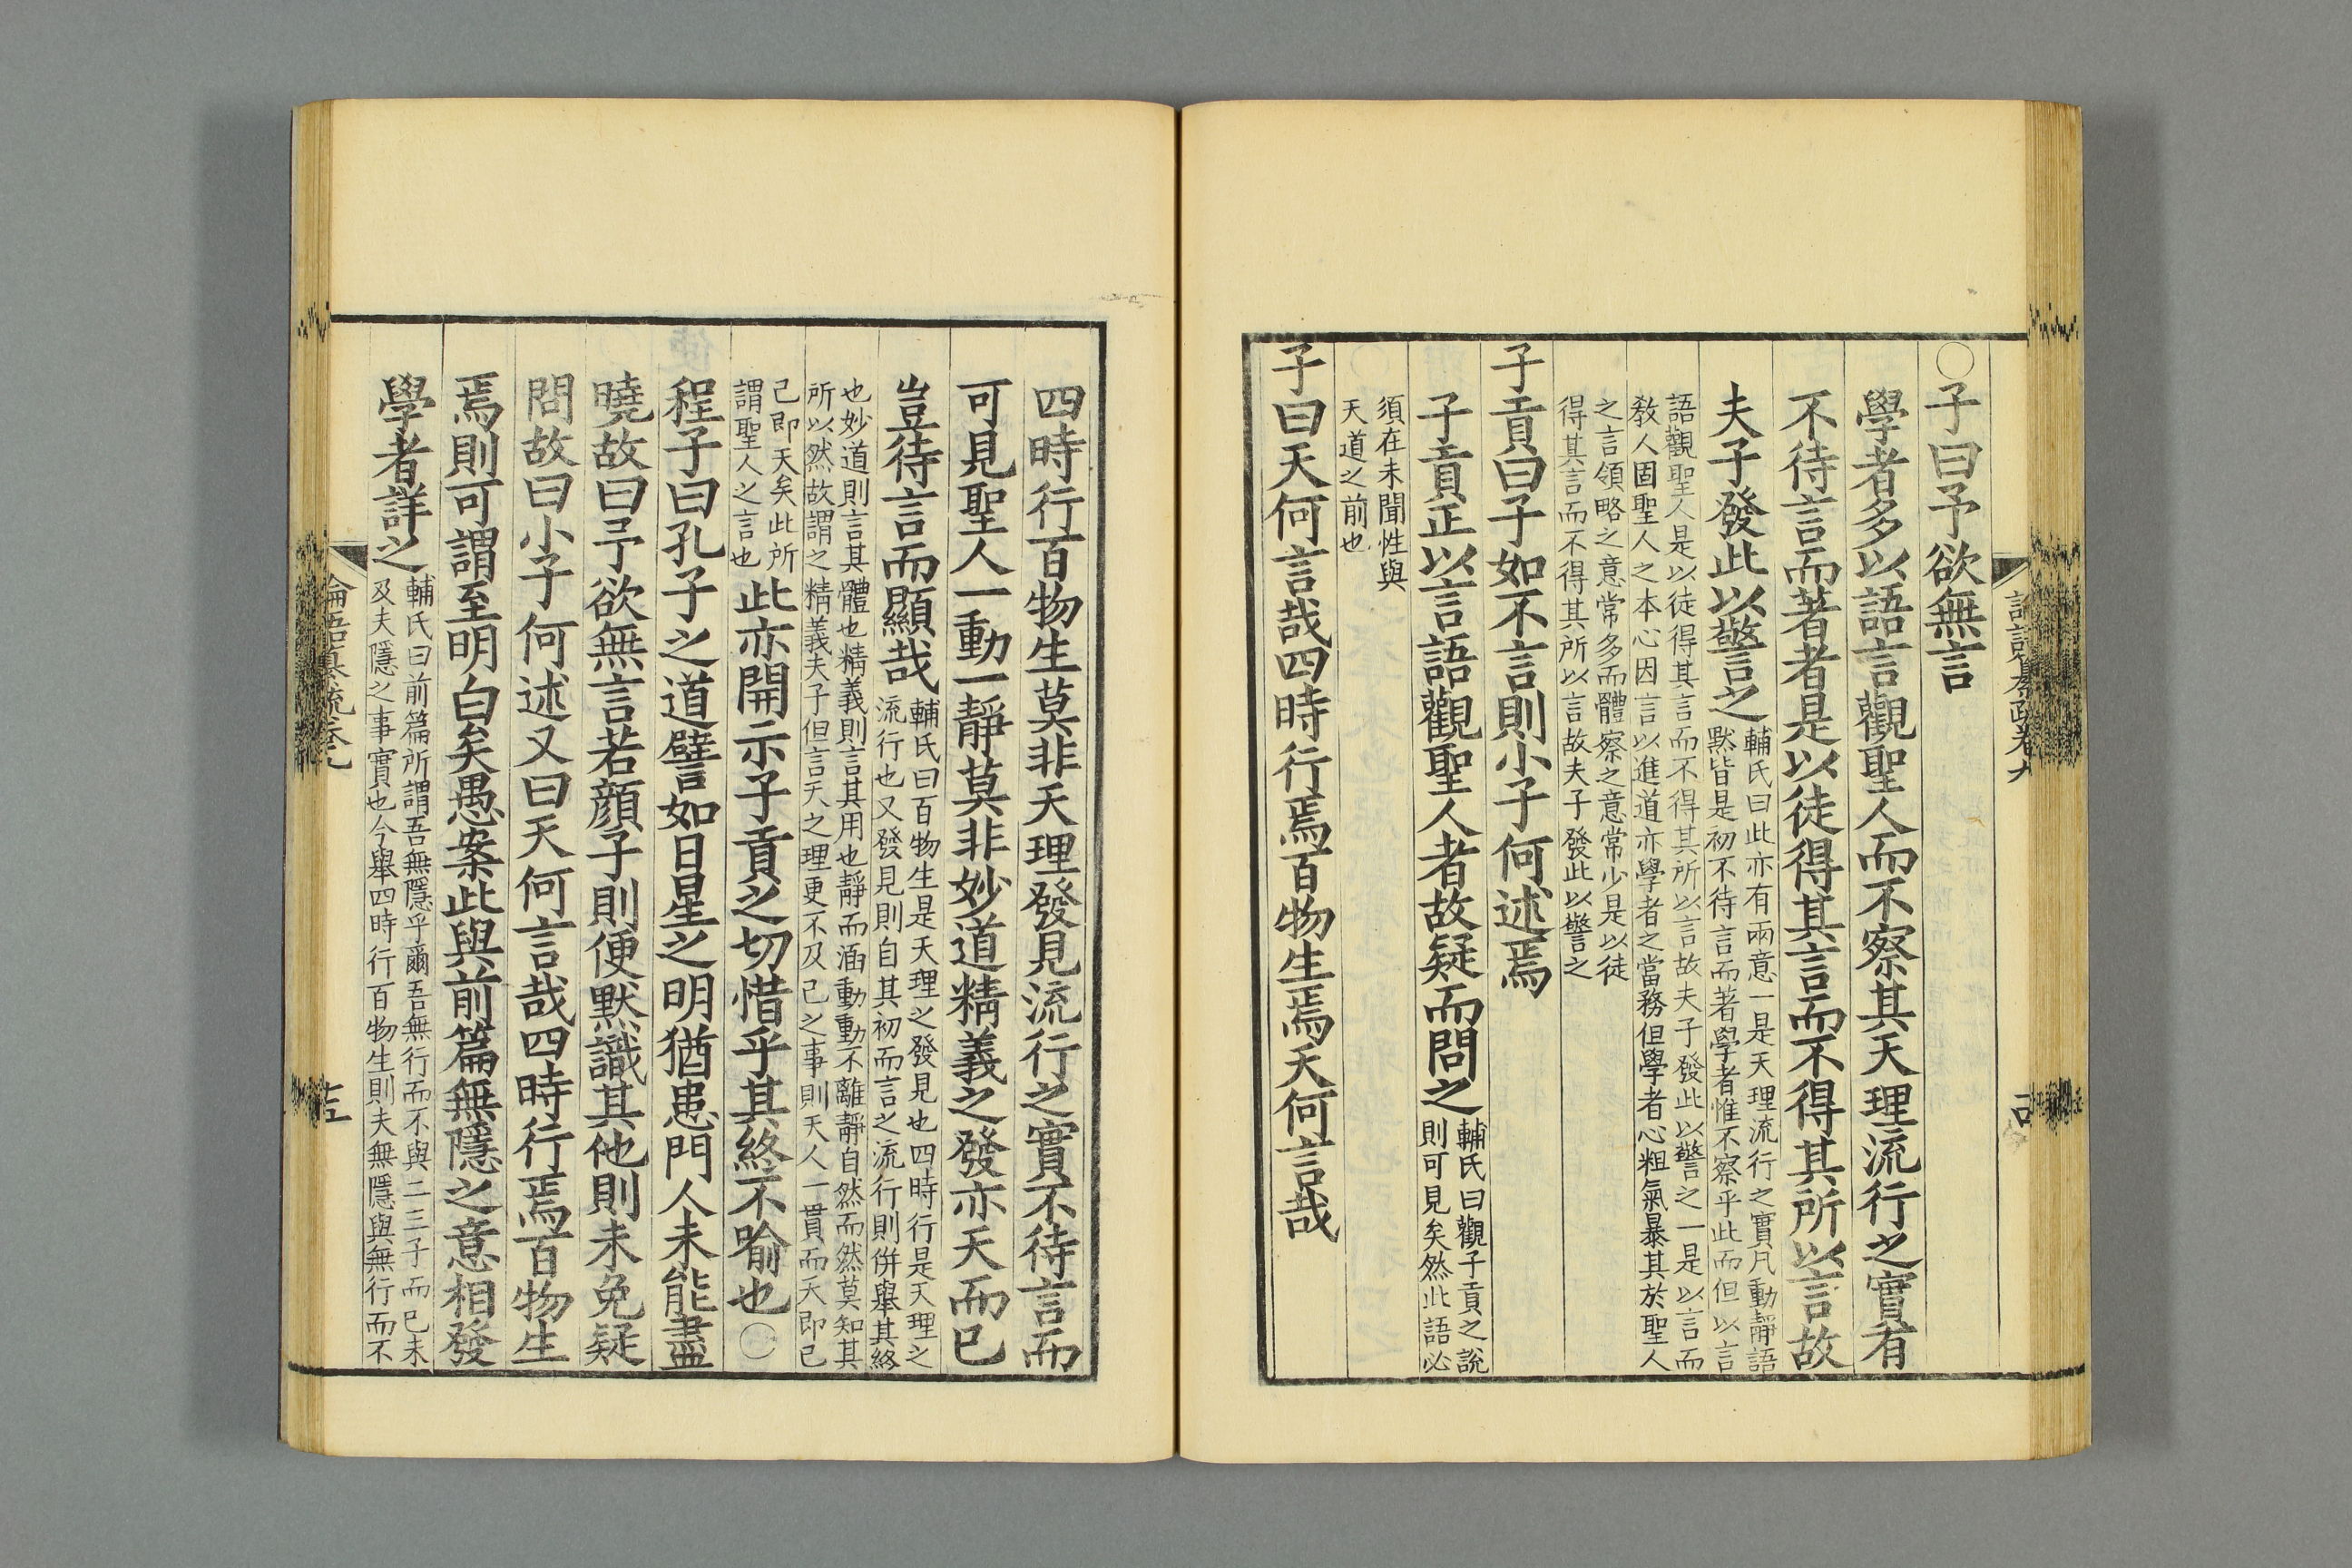 〇子曰予欲無言
學者多以語言觀聖人而不察其天理流行之實有
不待言而著者是以徒得其言而不得其所以言故
夫子發此以警之
輔氏曰此亦有兩意一是天理流行之實凡動靜語
默皆是初不待言而著學者惟不察乎此而但以言
語觀聖人是以徒得其言而不得其所以言故夫子發此以警之一是以言而
教人固聖人之本心因言以進道亦學者之當務但學者心粗氣暴其於聖人
之言領略之意常多而體察之意常少是以徒
得其言而不得其所以言故夫子發此以警之
子貢曰子如不言則小子何述焉
子貢正以言語觀聖人者故疑而問之
輔氏曰觀子貢之說
則可見矣然此語必
須在未聞性與
天道之前也
子曰天何言哉四時行焉百物生焉天何言哉
四時行百物生莫非天理發見流行之實不待言而
可見聖人一動一靜莫非妙道精義之發亦天而已
豈待言而顯哉
輔氏曰百物生是天理之發見也四時行是天理之
流行也又發見則自其初而言之流行則併舉其終
也妙道則言其體也精義則言其用也靜而涵動動不離靜自然而然莫知其
所以然故謂之精義夫子但言天之理更不及己之事則天人一貫而天即己
己即天矣此所
謂聖人之言也
此亦開示子貢之切惜乎其終不喻也〇
程子曰孔子之道譬如日星之明猶患門人未能盡
曉故曰予欲無言若顔子則便默識其他則未免疑
問故曰小子何述又曰天何言哉四時行焉百物生
焉則可謂至明白矣愚案此與前篇無隱之意相發
學者詳之
輔氏曰前篇所謂吾無隱乎爾吾無行而不與二三子而已未
及夫隱之事實也今舉四時行百物生則夫無隱與無行而不
論語纂疏卷九